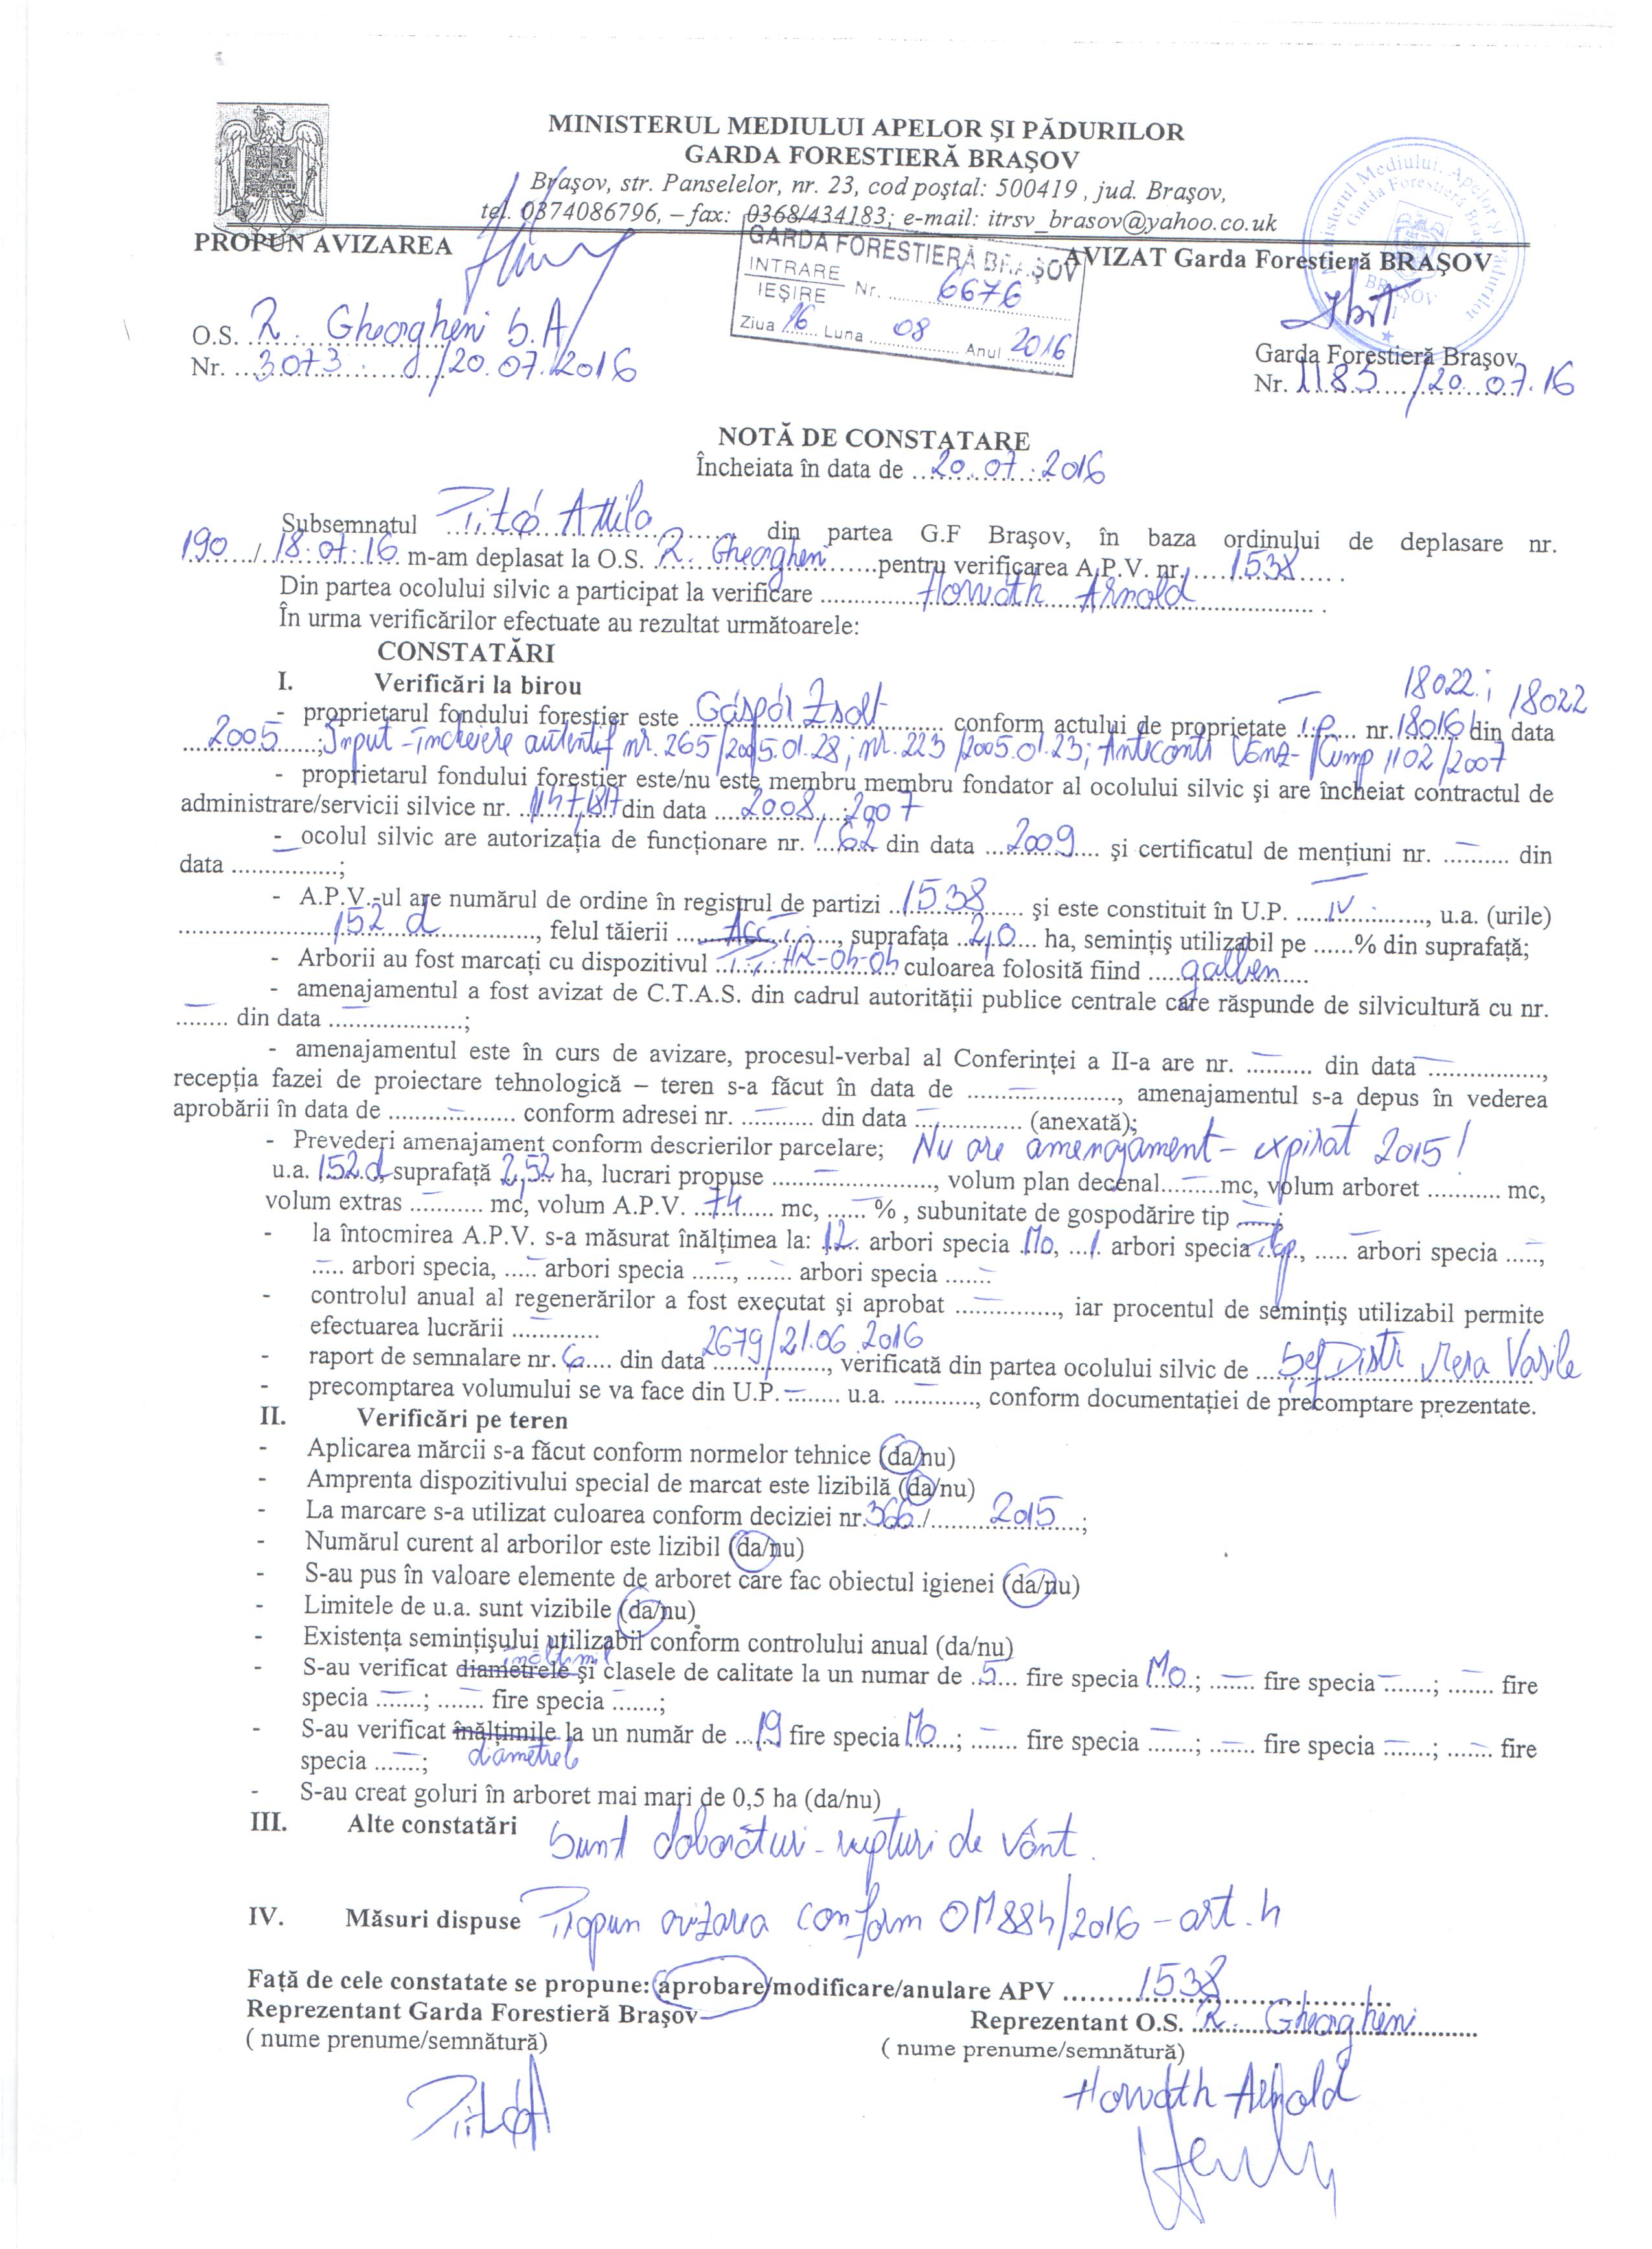 MINISTERUL MEDIULUI APELOR ŞI PĂDURILOR
GARDA FORESTIERĂ BRAŞOV
Braşov, str. Panselelor, nr. 23, cod poştal: 500419 , jud. Braşov,
tel. 0374086796, – fax: 0368/434183; e-mail: itrsv_brasov@yahoo.co.uk
PROPUN AVIZAREA
AVIZAT Garda Forestieră BRAŞOV
GARDA FORESTIERĂ BRAŞOV
INTRARE
IEŞIRE Nr. 6676
Ziua 16 Luna 08 Anul 2016
Ministerul Mediului, Apelor şi Pădurilor
Garda Forestieră Braşov
BRAŞOV
O.S. R. Gheorgheni S.A
Nr. 3073 /20.07.2016
Garda Forestieră Braşov
Nr. 1183 /20.07.16
NOTĂ DE CONSTATARE
Încheiata în data de 20.07.2016
Subsemnatul Attila din partea G.F Braşov, în baza ordinului de deplasare nr.
190 / 18.07.16 m-am deplasat la O.S. R. Gheorgheni pentru verificarea A.P.V. nr. 1538 .
Din partea ocolului silvic a participat la verificare Horváth Arnold .
În urma verificărilor efectuate au rezultat următoarele:
CONSTATĂRI
I. Verificări la birou
18022; 18022
- proprietarul fondului forestier este Gáspár Zsolt conform actului de proprietate T.P. nr. 18016 din data
2005 ; Input - încheiere autentif nr. 265/2005.01.28; nr. 223/2005.01.23; Antecontr Vanz- Cump 1102/2007
- proprietarul fondului forestier este/nu este membru membru fondator al ocolului silvic şi are încheiat contractul de
administrare/servicii silvice nr. din data 2008 ; 2007
- ocolul silvic are autorizaţia de funcţionare nr. 62 din data 2009 şi certificatul de menţiuni nr. – din
data ...............;
- A.P.V.-ul are numărul de ordine în registrul de partizi 1538 şi este constituit în U.P. IV , u.a. (urile)
152 d , felul tăierii Acc. I , suprafaţa 2,0 ha, seminţiş utilizabil pe ......% din suprafaţă;
- Arborii au fost marcaţi cu dispozitivul HR-04-04 culoarea folosită fiind galben
- amenajamentul a fost avizat de C.T.A.S. din cadrul autorităţii publice centrale care răspunde de silvicultură cu nr.
– din data – ;
- amenajamentul este în curs de avizare, procesul-verbal al Conferinţei a II-a are nr. – din data – ,
recepţia fazei de proiectare tehnologică – teren s-a făcut în data de – , amenajamentul s-a depus în vederea
aprobării în data de – conform adresei nr. – din data – (anexată);
- Prevederi amenajament conform descrierilor parcelare; Nu are amenajament - expirat 2015!
u.a. 152 d suprafaţă 2,52 ha, lucrari propuse – , volum plan decenal – mc, volum arboret – mc,
volum extras – mc, volum A.P.V. 74 mc, – % , subunitate de gospodărire tip – ;
- la întocmirea A.P.V. s-a măsurat înălţimea la: 12 arbori specia Mo, 1 arbori specia , ..... arbori specia – ,
– arbori specia, – arbori specia – , – arbori specia –
- controlul anual al regenerărilor a fost executat şi aprobat – , iar procentul de seminţiş utilizabil permite
efectuarea lucrării –
- raport de semnalare nr. 6 din data 2679/21.06.2016 , verificată din partea ocolului silvic de Şef Distr Mera Vasile
- precomptarea volumului se va face din U.P. – u.a. – , conform documentaţiei de precomptare prezentate.
II. Verificări pe teren
- Aplicarea mărcii s-a făcut conform normelor tehnice (da/nu)
- Amprenta dispozitivului special de marcat este lizibilă (da/nu)
- La marcare s-a utilizat culoarea conform deciziei nr. 366 / 2015 ;
- Numărul curent al arborilor este lizibil (da/nu)
- S-au pus în valoare elemente de arboret care fac obiectul igienei (da/nu)
- Limitele de u.a. sunt vizibile (da/nu)
- Existenţa seminţişului utilizabil conform controlului anual (da/nu)
- S-au verificat diametrele înălţimil şi clasele de calitate la un numar de 5 fire specia Mo ; – fire specia – ; – fire
specia – ; – fire specia – ;
- S-au verificat înălţimile la un număr de 19 fire specia Mo ; – fire specia – ; – fire specia – ; – fire
specia – ; diametrel
- S-au creat goluri în arboret mai mari de 0,5 ha (da/nu)
III. Alte constatări Sunt doborâturi - rupturi de vânt.
IV. Măsuri dispuse Propun avizarea conform OM 884/2016 - art. 4
Faţă de cele constatate se propune: aprobare/modificare/anulare APV 1538
Reprezentant Garda Forestieră Braşov
Reprezentant O.S. R. Gheorgheni
( nume prenume/semnătură)
( nume prenume/semnătură)
Horváth Arnold